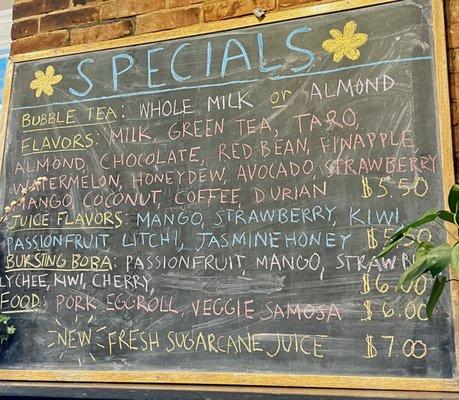 SPECIALS
BUBBLE TEA: WHOLE MILK or ALMOND
FLAVORS: MILK, GREEN TEA, TARO,
ALMOND, CHOCOLATE, RED BEAN, FINAPPLE,
WATERMELON, HONEYDEW, AVOCADO, STRAWBERRY
MANGO, COCONUT, COFFEE, DURIAN $5.50
JUICE FLAVORS: MANGO, STRAWBERRY, KIWI,
PASSIONFRUIT, LITCHI, JASMINE HONEY $5.
BURSTING BOBA: PASSIONFRUIT, MANGO, STRAW
LYCHEE, KIWI, CHERRY,
FOOD: PORK EGGROLL, VEGGIE SAMOSA $6.00
NEW FRESH SUGARCANE JUICE $7.00